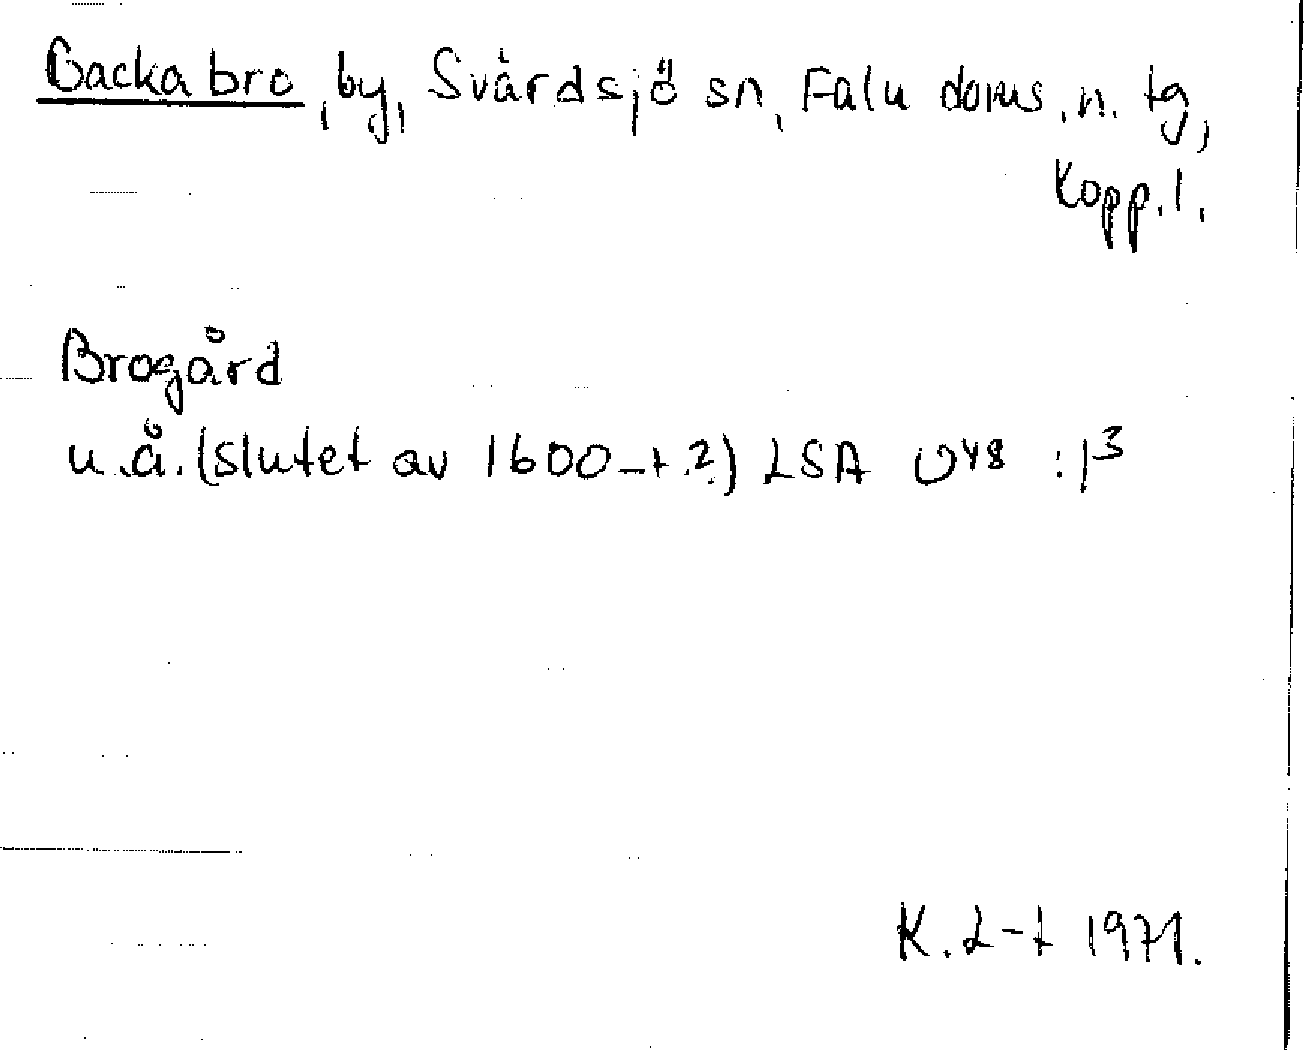 Backa bro, by, Svärdsjö sn, Falu doms. n. tg,
Kopp. l.
Brogård
u.å. (slutet av 1600-t?) LSA U48 :1³
K. L-t 1971.